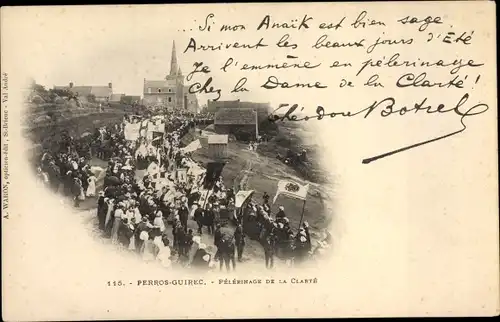 Si mon Anaïk est bien sage
Arrivent les beaux jours d'Eté
Je l'emmène en pélerinage
chez la Dame de la Clarté!
Théodore Botrel
A. WARON, opticien-édit.; St-Brieuc - Val André
115. - PERROS-GUIREC. - PÉLÉRINAGE DE LA CLARTÉ